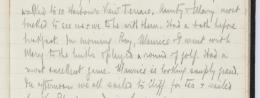 walked to 10 Harbour View Terrace. Aunty & Mary most
excited to see us & we to be with them. Had a bath before
breakfast. In morning Roy, Maurice & I went with
Mary to the links & played a round of golf. Had a
most excellent game. Maurice is looking simply grand.
In afternoon we all sailed to Cliff for tea & sailed